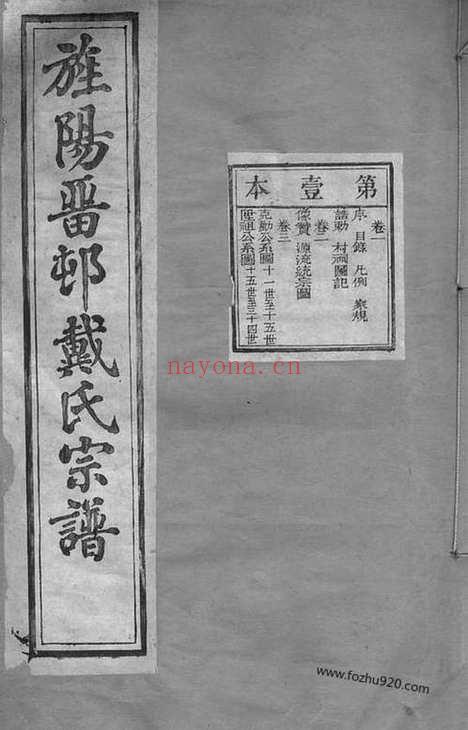 旌陽晋邨戴氏宗譜
第壹本
卷一
序 目錄 凡例 家規
誥勅 村祠圖記
卷二
像贊 源流統宗圖
卷三
克勤公系圖十一世至十五世
聖祖公系圖十五世至三十四世
nayona.cn
www.fozhu920.com